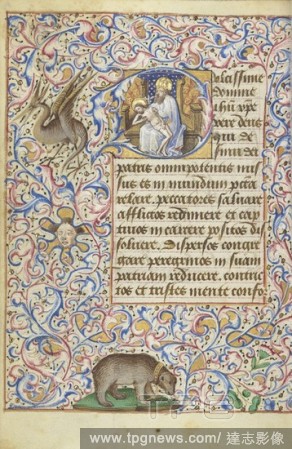 olcissime
domine
ihu xpe
vere deus
qui de
sinu dei
patris omnipotentis mis
sus es in mundum pecca
relaxare, peccatores saluare
afflictos redimere et cap
tiuos in carcere positos dis
soluere, Dispersos congre
gare peregrinos in suam
patriam reducere, contri
tos et tristes mente conso
TPG
www.tpgnews.com / 達志影像